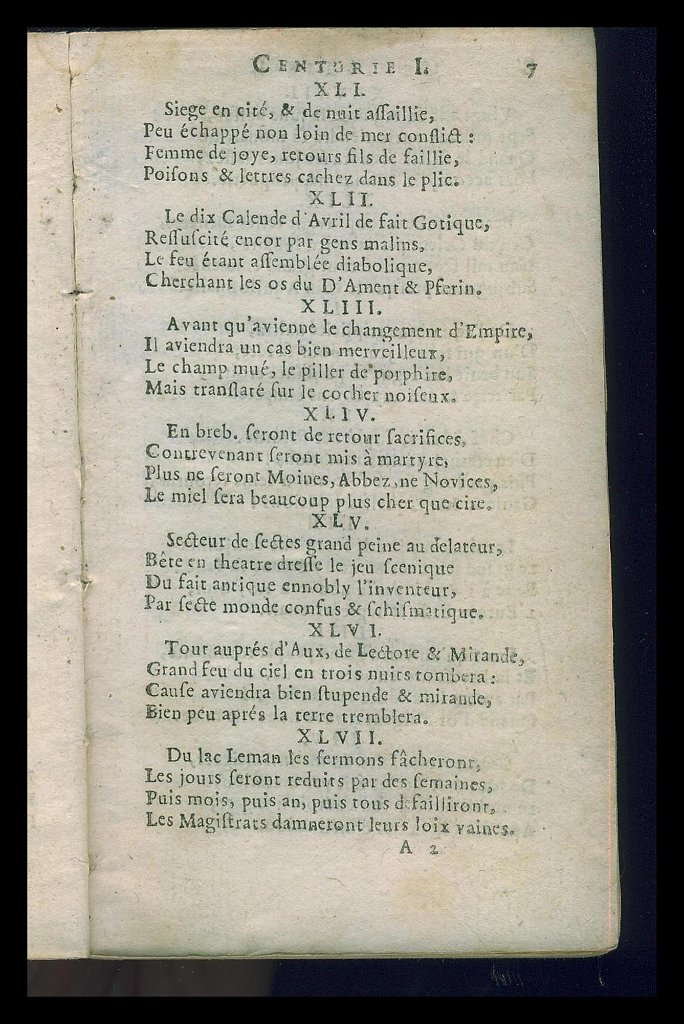 CENTURIE I. 7
XLI.
Siege en cité, & de nuit aſſaillie,
Peu échappé non loin de mer conflict :
Femme de joye, retours fils de faillie,
Poiſons & lettres cachez dans le plic.
XLII.
Le dix Calende d'Avril de fait Gotique,
Reſſuſcité encor par gens malins,
Le feu étant aſſemblée diabolique,
Cherchant les os du D'Ament & Pſerin.
XLIII.
Avant qu'avienne le changement d'Empire,
Il aviendra un cas bien merveilleux,
Le champ mué, le piller de porphire,
Mais tranſlaté ſur le cocher noiſeux.
XLIV.
En breb. ſeront de retour ſacrifices,
Contrevenant ſeront mis à martyre,
Plus ne ſeront Moines, Abbez, ne Novices,
Le miel ſera beaucoup plus cher que cire.
XLV.
Secteur de ſectes grand peine au delateur,
Bête en theatre dreſſe le jeu ſcenique
Du fait antique ennobly l'inventeur,
Par ſecte monde confus & ſchiſmatique.
XLVI.
Tout auprés d'Aux, de Lectore & Mirande,
Grand feu du ciel en trois nuits tombera :
Cauſe aviendra bien ſtupende & mirande,
Bien peu aprés la terre tremblera.
XLVII.
Du lac Leman les ſermons fâcheront,
Les jours ſeront reduits par des ſemaines,
Puis mois, puis an, puis tous defailliront,
Les Magiſtrats damneront leurs loix vaines.
A 2